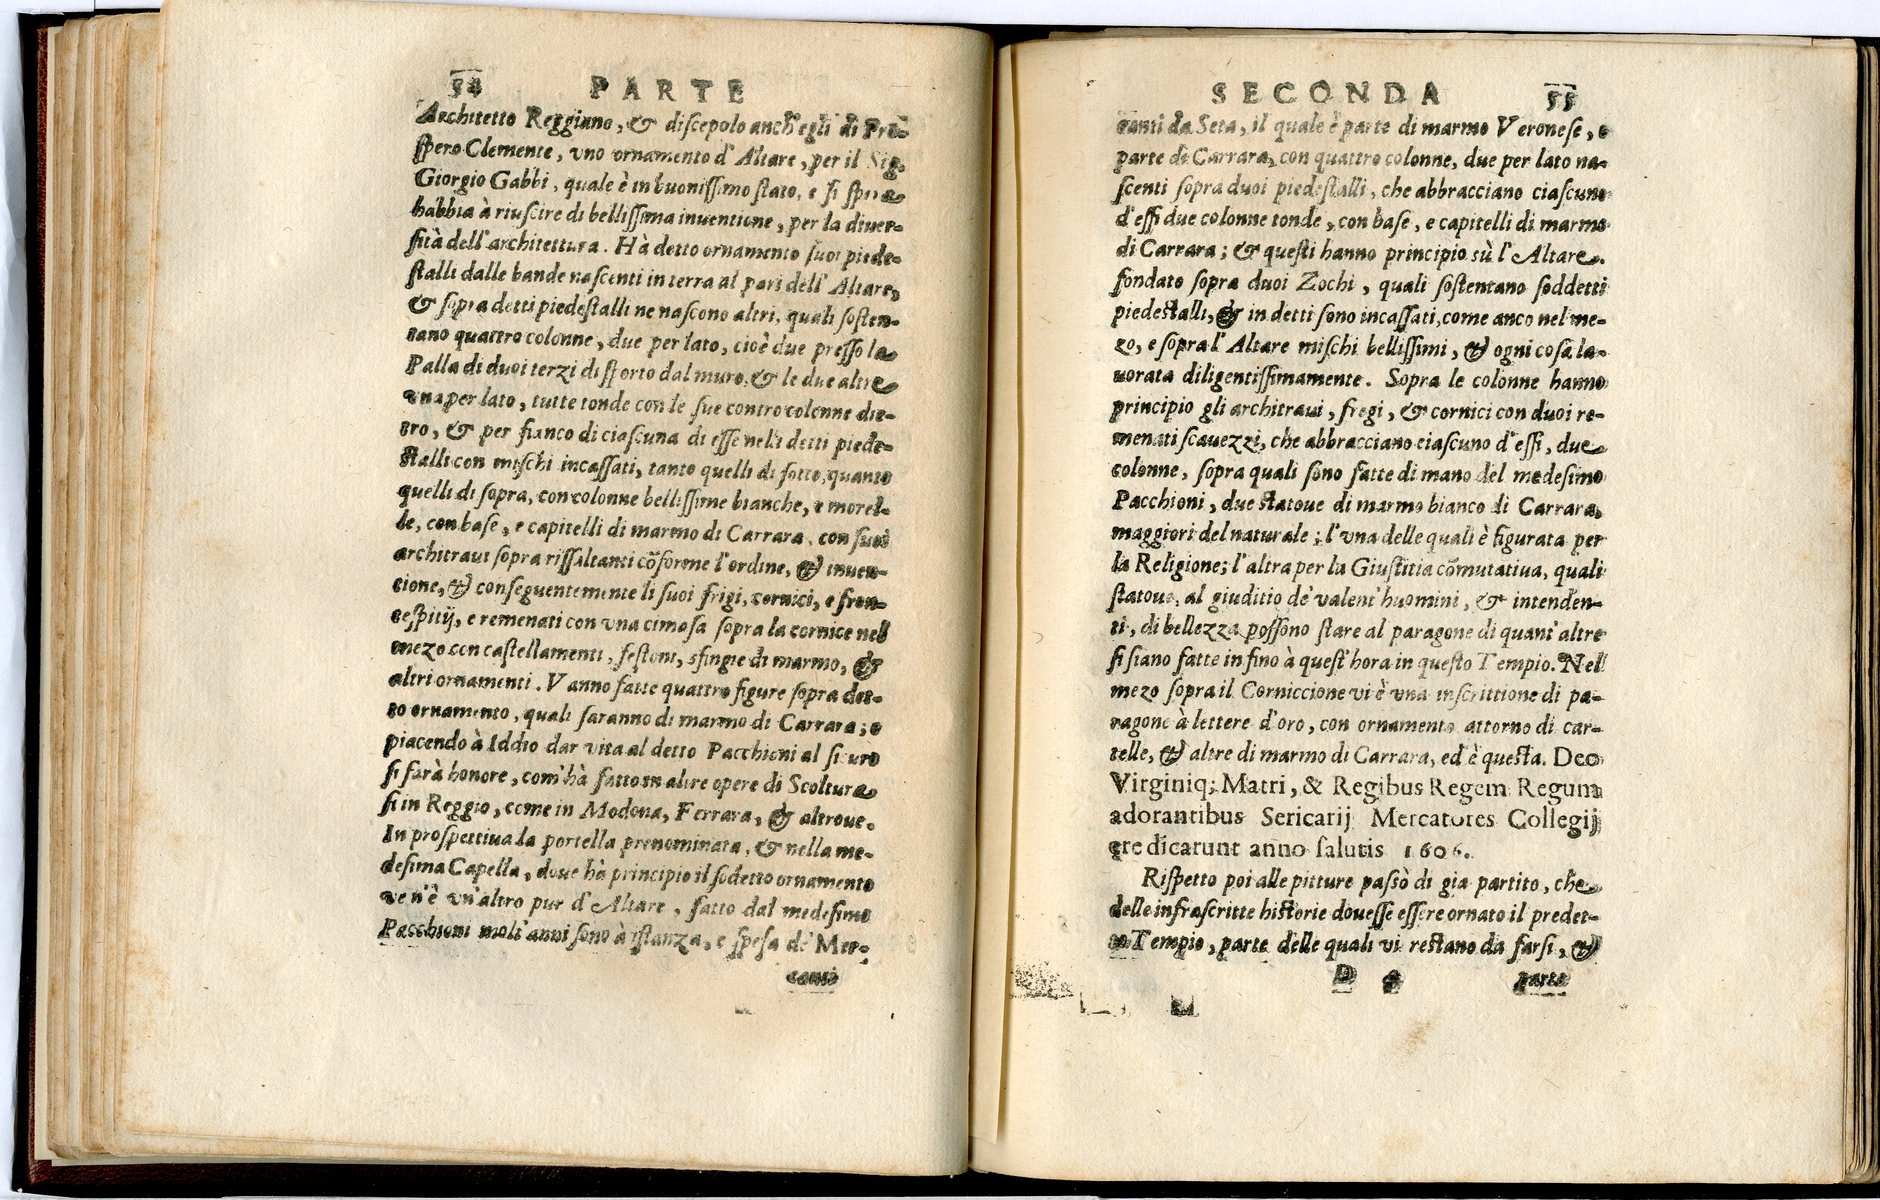 54 PARTE
Architetto Reggiano, & discepolo anch'egli di Pro-
spero Clemente, vno ornamento d'Altare, per il Sig.
Giorgio Gabbi, quale è in buonissimo stato, e si spera
habbia à riuscire di bellissima inuentione, per la diuer-
sità dell'architettura. Hà detto ornamento suoi piede-
stalli dalle bande nascenti in terra al pari dell'Altare,
& sopra detti piedestalli ne nascono altri, quali sosten-
tano quattro colonne, due per lato, cioè due presso la
Palla di duoi terzi di sporto dal muro, & le due altre
vna per lato, tutte tonde con le sue contro colonne die-
tro, & per fianco di ciascuna di esse nelli detti piede-
stalli con mischi incassati, tanto quelli di sotto, quanto
quelli di sopra, con colonne bellissime bianche, e morel-
le, con base, e capitelli di marmo di Carrara, con suoi
architraui sopra rissaltanti cõforme l'ordine, & inuen-
tione, & conseguentemente li suoi frigi, cornici, e fron-
tespitij, e remenati con vna cimasa sopra la cornice nel
mezo con castellamenti, festoni, sfingie di marmo, &
altri ornamenti. Vanno fatte quattro figure sopra det-
to ornamento, quali saranno di marmo di Carrara; e
piacendo à Iddio dar vita al detto Pacchioni al sicuro
si farà honore, com'hà fatto in altre opere di Scoltura
si in Reggio, come in Modona, Ferrara, & altroue.
In prospettiua la portella prenominata, & nella me-
desima Capella, doue hà principio il sodetto ornamento
ve n'è vn'altro pur d'Altare, fatto dal medesimo
Pacchioni molt'anni sono à istanza, e spesa de' Mer-
canti
SECONDA 55
canti da Seta, il quale è parte di marmo Veronese, e
parte di Carrara, con quattro colonne, due per lato na-
scenti sopra duoi piedestalli, che abbracciano ciascuno
d'essi due colonne tonde, con base, e capitelli di marmo
di Carrara; & questi hanno principio sù l'Altare.
fondato sopra duoi Zochi, quali sostentano soddetti
piedestalli, & in detti sono incassati, come anco nel me-
zo, e sopra l'Altare mischi bellissimi, & ogni cosa la-
uorata diligentissimamente. Sopra le colonne hanno
principio gli architraui, fregi, & cornici con duoi re-
menati scauezzi, che abbracciano ciascuno d'essi, due
colonne, sopra quali sono fatte di mano del medesimo
Pacchioni, due statoue di marmo bianco di Carrara,
maggiori del naturale; l'vna delle quali è figurata per
la Religione; l'altra per la Giustitia cõmutatiua, quali
statoue, al giuditio de' valent'huomini, & intenden-
ti, di bellezza possono stare al paragone di quant'altre
si siano fatte in fino à quest'hora in questo Tempio. Nel
mezo sopra il Corniccione vi è vna inscrittione di pa-
ragone à lettere d'oro, con ornamento attorno di car-
telle, & altre di marmo di Carrara, ed è questa. Deo
Virginiq; Matri, & Regibus Regem Regum
adorantibus Sericarij Mercatores Collegij
ere dicarunt anno salutis 1606.
Rispetto poi alle pitture passò di gia partito, che
delle infrascritte historie douesse essere ornato il predet-
to Tempio, parte delle quali vi restano da farsi, &
D parte